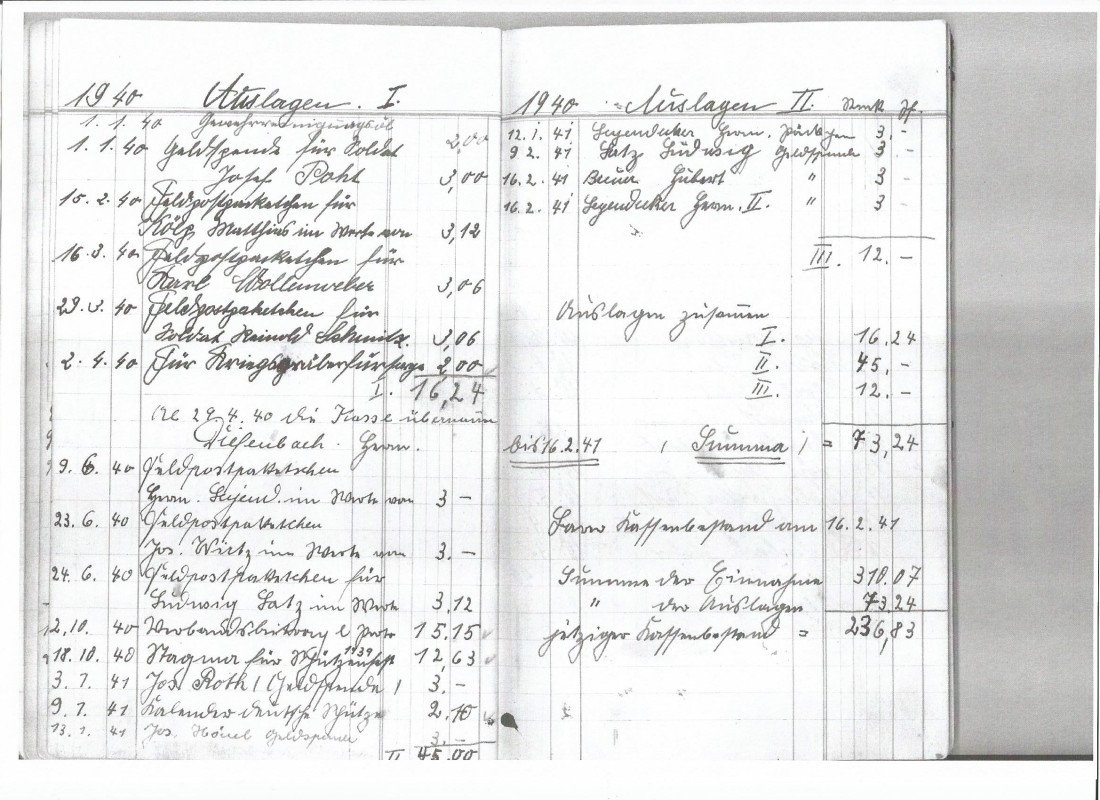 1940 Auslagen. I.
1. 1. 40 Gewehrreinigungsöl 2,00
1. 1. 40 Geldspende für Soldat
Josef Poht 3,00
15. 2. 40 Feldpostpacketchen für
Kölp Matthias im Werte von 3,12
16. 3. 40 Feldpostpacketchen für
Karl Wollenweber 3,06
29. 3. 40 Feldpostpaketchen für
Soldat Reinold Schmitz. 3,06
2. 4. 40 Für Kriegsgräberfürsorge 2,00
I. 16,24
29. 4. 40 die Kasse übernomm
Diefenbach. Herm.
9. 6. 40 Feldpostpaketschen
Herm. Legend. im Werte von 3 –
23. 6. 40 Feldpostpaketchen
Jos. Wirtz im Werte von 3. –
24. 6. 40 Feldpostpaketchen für
Ludwig Satz im Werte 3,12
2. 10. 40 Verbandsbeitrag & Porto 15.15
18. 10. 40 Stagma für Schützenfest 1939 12,63
3. 1. 41 Jos. Roth / Geldspende / 3. –
9. 1. 41 Kalender deutsche Schütze 2.10
13. 1. 41 Jos. Geldspende 3. –
II 45.00
1940 Auslagen II. Mark Pf.
12. 1. 41 Legendecker Herm. Päckchen 3. –
9 2. 41 Satz Ludwig Geldspende 3 –
16. 2. 41 Hubert " 3 –
16. 2. 41 Legendecker Herm. II. " 3 –
III. 12. –
Auslagen zusammen
I. 16,24
II. 45, –
III. 12. –
bis 16. 2. 41 / Summa / = 73,24
Barer Kassenbestand am 16. 2. 41
Summe der Einnahme 310.07
" der Auslagen 73.24
jetziger Kassenbestand = 236,83